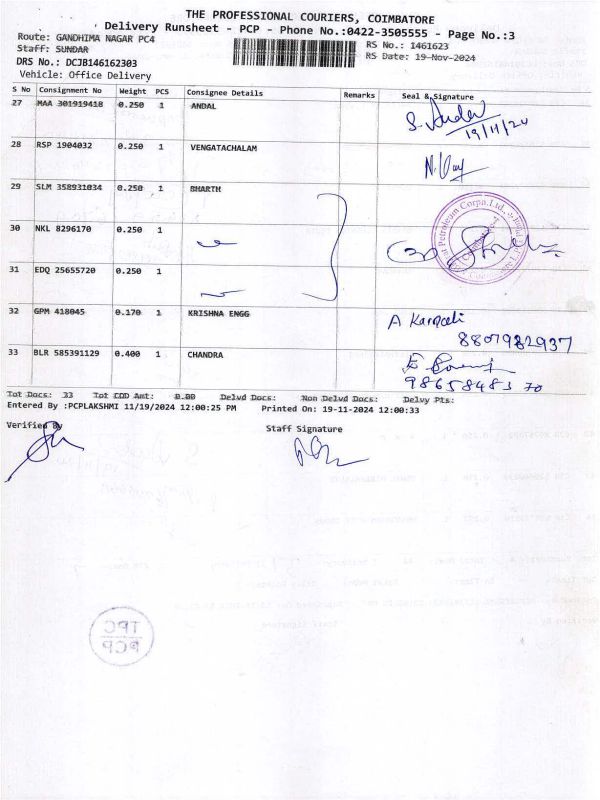 THE PROFESSIONAL COURIERS, COIMBATORE
Delivery Runsheet - PCP - Phone No.:0422-3505555 - Page No.:3
Route: GANDHIMA NAGAR PC4
RS No.: 1461623
Staff: SUNDAR
RS Date: 19-Nov-2024
DRS No.: DCJB146162303
Vehicle: Office Delivery
S No Consignment No Weight PCS Consignee Details Remarks Seal & Signature
27 MAA 301919418 0.250 1 ANDAL
19/11/24
28 RSP 1904032 0.250 1 VENGATACHALAM
29 SLM 358931034 0.250 1 BHARTH
30 NKL 8296170 0.250 1
31 EDQ 25655720 0.250 1
32 GPM 418045 0.170 1 KRISHNA ENGG
8807982937
33 BLR 585391129 0.400 1 CHANDRA
9865848370
Tot Docs: 33 Tot COD Amt: 0.00 Delvd Docs: Non Delvd Docs: Delvy Pts:
Entered By :PCPLAKSHMI 11/19/2024 12:00:25 PM Printed On: 19-11-2024 12:00:33
Verified By
Staff Signature
TPC
PCP